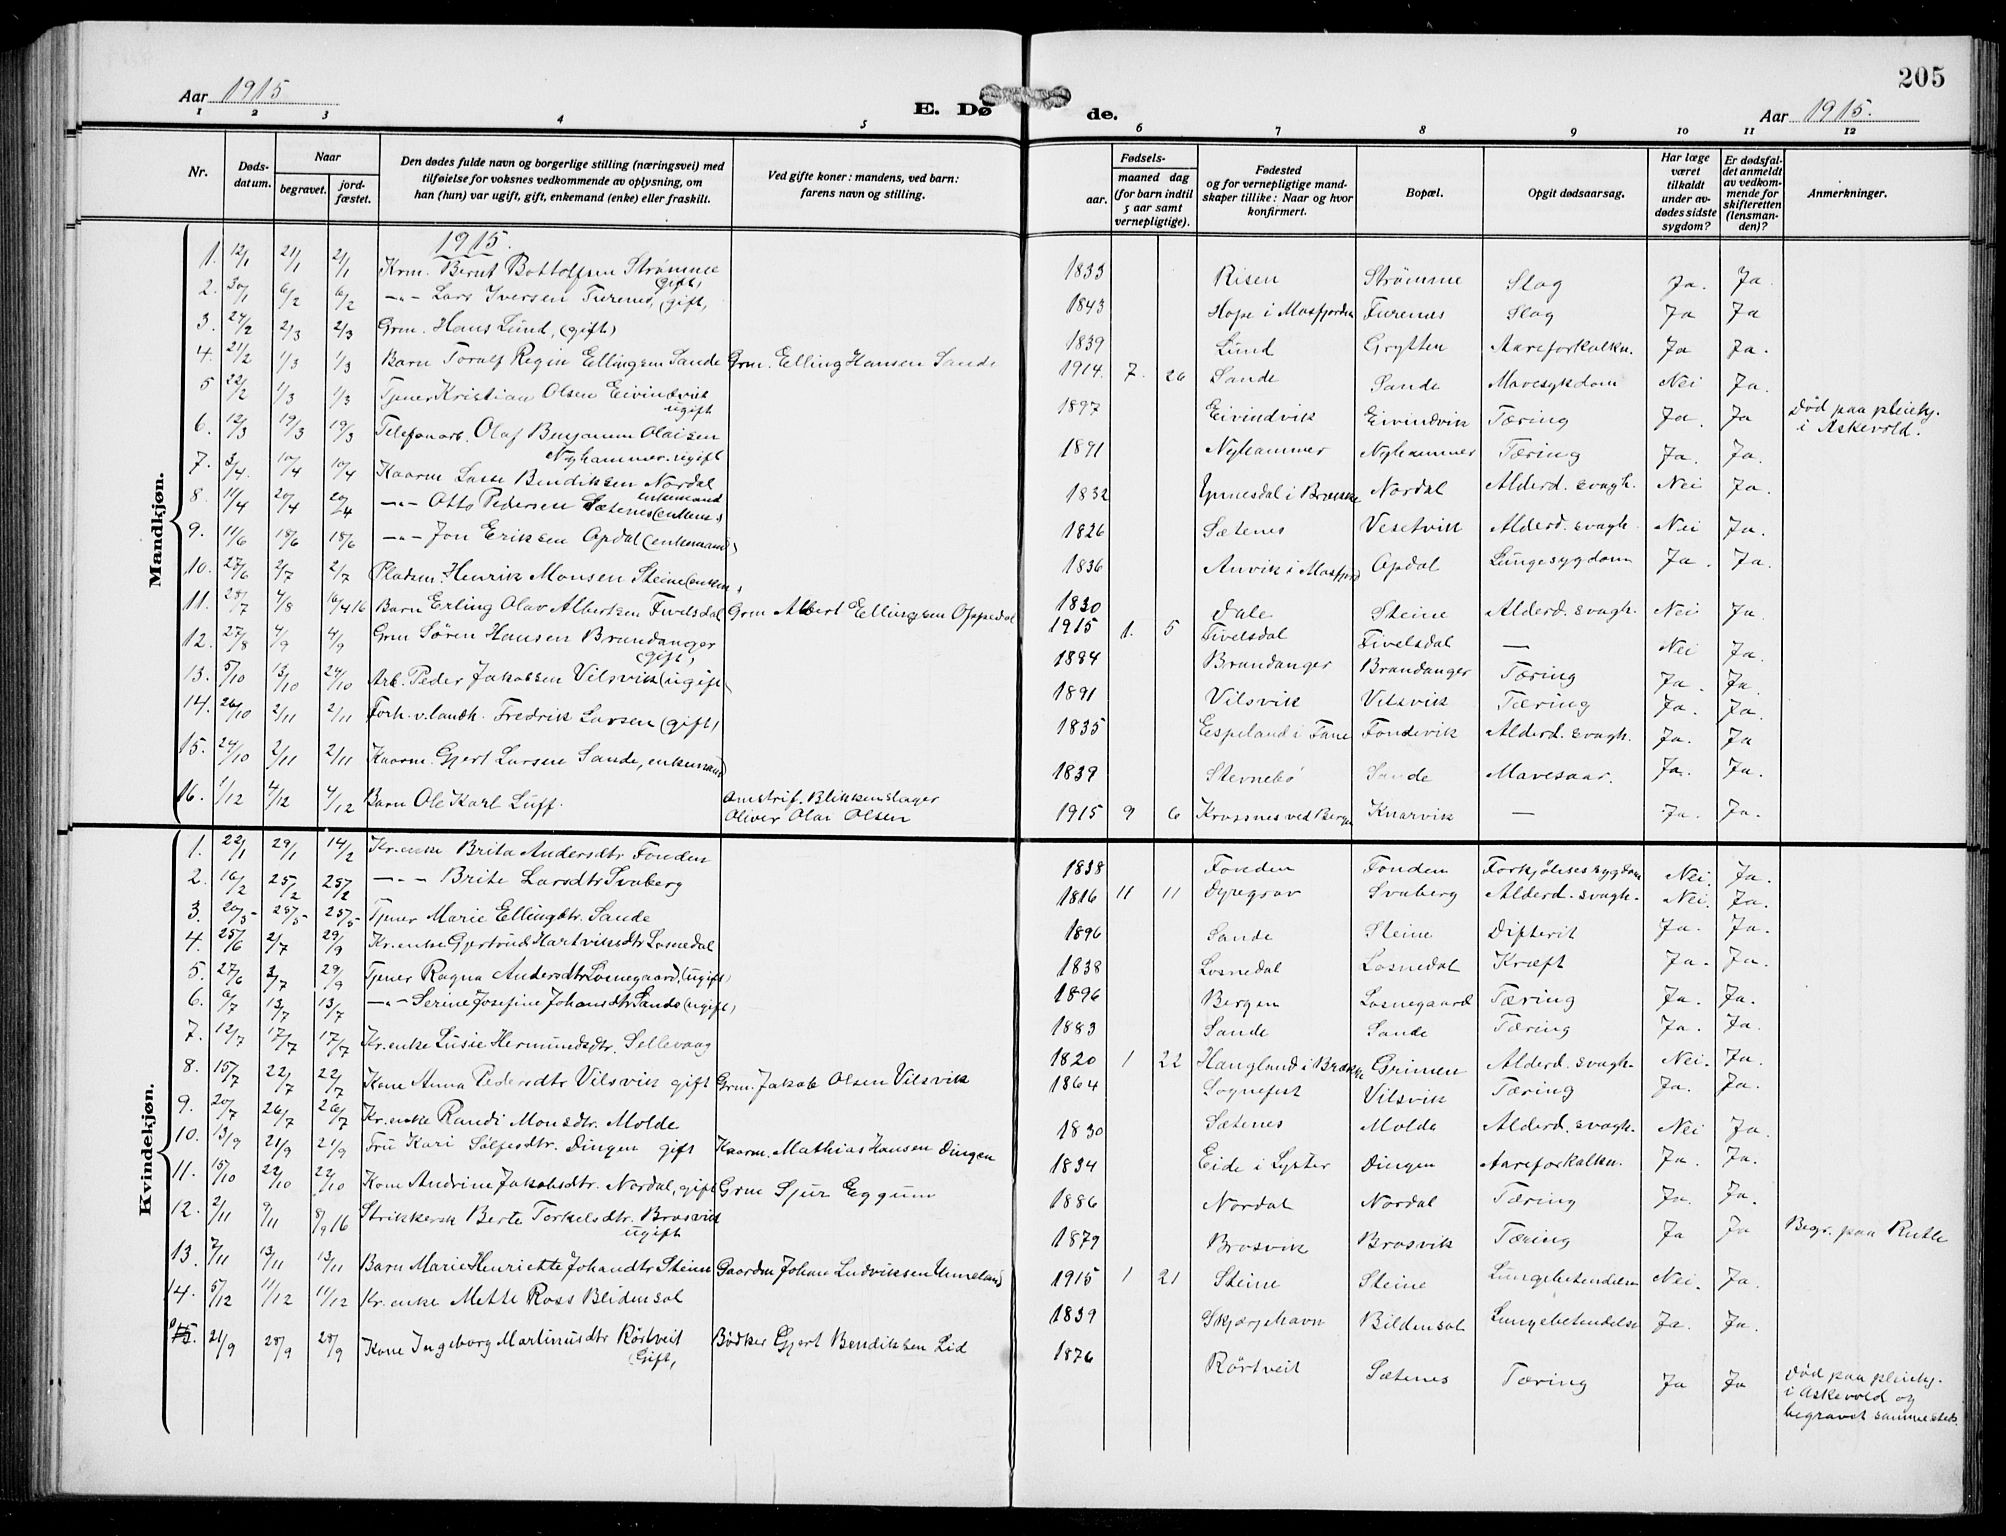 205
Aar 1915
E. Dø de.
Aar 1915.
1 2 3 4 5 6 7 8 9 10 11 12
Nr. Døds-datum. Naar begravet. jord-fæstet. Den dødes fulde navn og borgerlige stilling (næringsvei) med tilføielse for voksnes vedkommende av oplysning, om han (hun) var ugift, gift, enkemand (enke) eller fraskilt. Ved gifte koner: mandens, ved barn: farens navn og stilling. Fødsels- aar. maaned dag (for barn indtil 5 aar samt vernepligtige). Fødested og for vernepligtige mand-skaper tillike: Naar og hvor konfirmert. Bopæl. Opgit dødsaarsag. Har læge været tilkaldt under av-dødes sidste sygdom? Er dødsfal-det anmeldt av vedkom-mende for skifteretten (lensman-den)? Anmerkninger.
Mandkjøn.
1915.
1. 12/1 21/1 21/1 Krm. Bernt Bottolfsen Strømme (gift) 1833 Risen Strømme Slag Ja. Ja.
2. 30/1 6/2 6/2 -"- Lars Iversen Furenes, (gift) 1843 Hope i Masfjorden Furenes Slag Ja Ja
3. 24/2 2/3 2/3 Grm. Hans Lund, (gift) 1839 Lund Grytten Aareforkalkn. Ja Ja.
4. 21/2 1/3 1/3 Barn Toralf Regin Ellingsen Sande Grm. Elling Hansen Sande 1914. 7. 26 Sande Sande Mavesykdom Nei Ja.
5 22/2 1/3 1/3 Tjener Kristian Olsen Eivindvik ugift 1897 Eivindvik Eivindvik Tæring Ja. Ja Død paa pleiehj. i Askevold.
6. 12/3 19/3 19/3 Telefonarb. Olaf Benjamin Olaisen Nyhammer. ugift 1891 Nyhammer Nyhammer Tæring Ja. Ja.
7. 3/4. 10/4 10/4 Kaarm Lasse Bendiksen Nordal enkemand 1832 Ynnesdal i Brekke Nordal Alderd. svagh. Nei Ja.
8. 11/4 20/4 20/4 -"- Otto Pedersen Sætenes (enkem.) 1826 Sætenes Vesetvik Alderd. svagh. Nei Ja.
9. 11/6 18/6 18/6 -"- Jon Eriksen Opdal (enkemand) 1836 Anvik i Masfjord Opdal Lungesygdom Ja. Ja.
10. 27/6 2/7 2/7 Pladsm. Henrik Monsen Steine (enkem.) 1830 Dale Steine Alderd. svagh. Nei Ja.
11. 28/7 4/8 16/4 16 Barn Erling Olav Albertsen Fivelsdal Grm Albert Ellingsen Oppedal 1915 1. 5 Fivelsdal Fivelsdal — Nei Ja.
12. 27/8 4/9 4/9 Grm Søren Hansen Brandanger (gift) 1884 Brandanger Brandanger Tæring Ja. Ja.
13. 5/10 13/10 24/10 Arb. Peder Jakobsen Vilsvik (ugift) 1891 Vilsvik Vilsvik Tæring Ja. Ja.
14. 26/10 2/11 2/11 Forh. v. landh. Fredrik Larsen (gift) 1835 Espeland i Fane Fondevik Alderd. svagh. Ja. Ja
15. 24/10 2/11 2/11 Kaarm. Gjert Larsen Sande, enkemand 1839 Sternebø Sande Mavesaar. Ja. Ja.
16. 1/12 4/12 4/12 Barn Ole Karl Luff. Omstrif. Blikkenslager Oliver Olai Olsen 1915 9 6 Krossnes ved Bergen Knarvik — Ja. Ja.
Kvindekjøn.
1. 22/1 29/1 14/2 Kr. enke Brita Andersdtr Fonden 1838 Fonden Fonden Forkjølelsessygdom Nei. Ja.
2. 16/2 25/2 25/2 -"- Brite Larsdtr Svaberg 1816 11 11 Dyregrov Svaberg Alderd. svagh. Nei. Ja.
3. 20/5 28/5 28/5 Tjener Marie Ellingdtr. Sande 1896 Sande Steine Difterit Ja. Ja.
4. 25/6 2/7 29/9 Kr. enke Gjertrud Hartviksdtr Losnedal 1838 Losnedal Losnedal Kræft Ja. Ja.
5. 27/6 3/7 29/9 Tjener Ragna Andersdtr Losnegaard, (ugift) 1896 Bergen Losnegaard Tæring Ja. Ja.
6. 6/7 13/7 13/7 -"- Serine Josefine Johansdtr Sande (ugift) 1883 Sande Sande Tæring Ja. Ja.
7. 12/7 17/7 17/7 Kr. enke Lusie Hermundsdtr. Sellevaag 1820 1 22 Haugland i Brekke Grinen Alderd. svagh. Nei. Ja.
8. 15/7 22/7 22/7 Kone Anna Pedersdtr Vilsvik gift Grm. Jakob Olsen Vilsvik 1864 Sognefest Vilsvik Tæring Ja. Ja.
9. 20/7 26/7 26/7 Kr. enke Randi Monsdtr. Molde 1830 Sætenes Molde Alderd. svagh. Nei Ja.
10. 13/9 21/9 21/9 Fru Kari Sølfesdtr. Dingen gift Kaarm. Mathias Hansen Dingen 1834 Eide i Lyster Dingen Aareforkalkn. Ja. Ja.
11. 15/10 22/10 22/10 Kone Andrine Jakobsdtr. Nordal, gift Grm Sjur Eggum 1886 Nordal Nordal Tæring Ja. Ja.
12. 2/11 9/11 8/9 16 Strikkersk Berte Torkelsdtr. Brosvik ugift 1879 Brosvik Brosvik Tæring Ja Ja Begr. paa Rutle
13. 7/11 13/11 13/11 Barn Marie Henriette Johandtr Steine Gaardm Johan Ludviksen Unneland 1915 1 21 Steine Steine Lungebetendelse Nei. Ja.
14. 5/12 11/12 11/12 Kr. enke Mette Ross Bildensol 1839 Skjærjehavn Bildensol Lungebetendelse Ja. Ja.
15. 21/9 28/9 28/9 Kone Ingeborg Martinusdtr Rörtveit (Gift) Bödker Gjert Bendiksen Lid 1876 Rörtveit Sætenes Tæring Ja Ja Død paa pleiehj. i Askevold og begravet sammesteds.